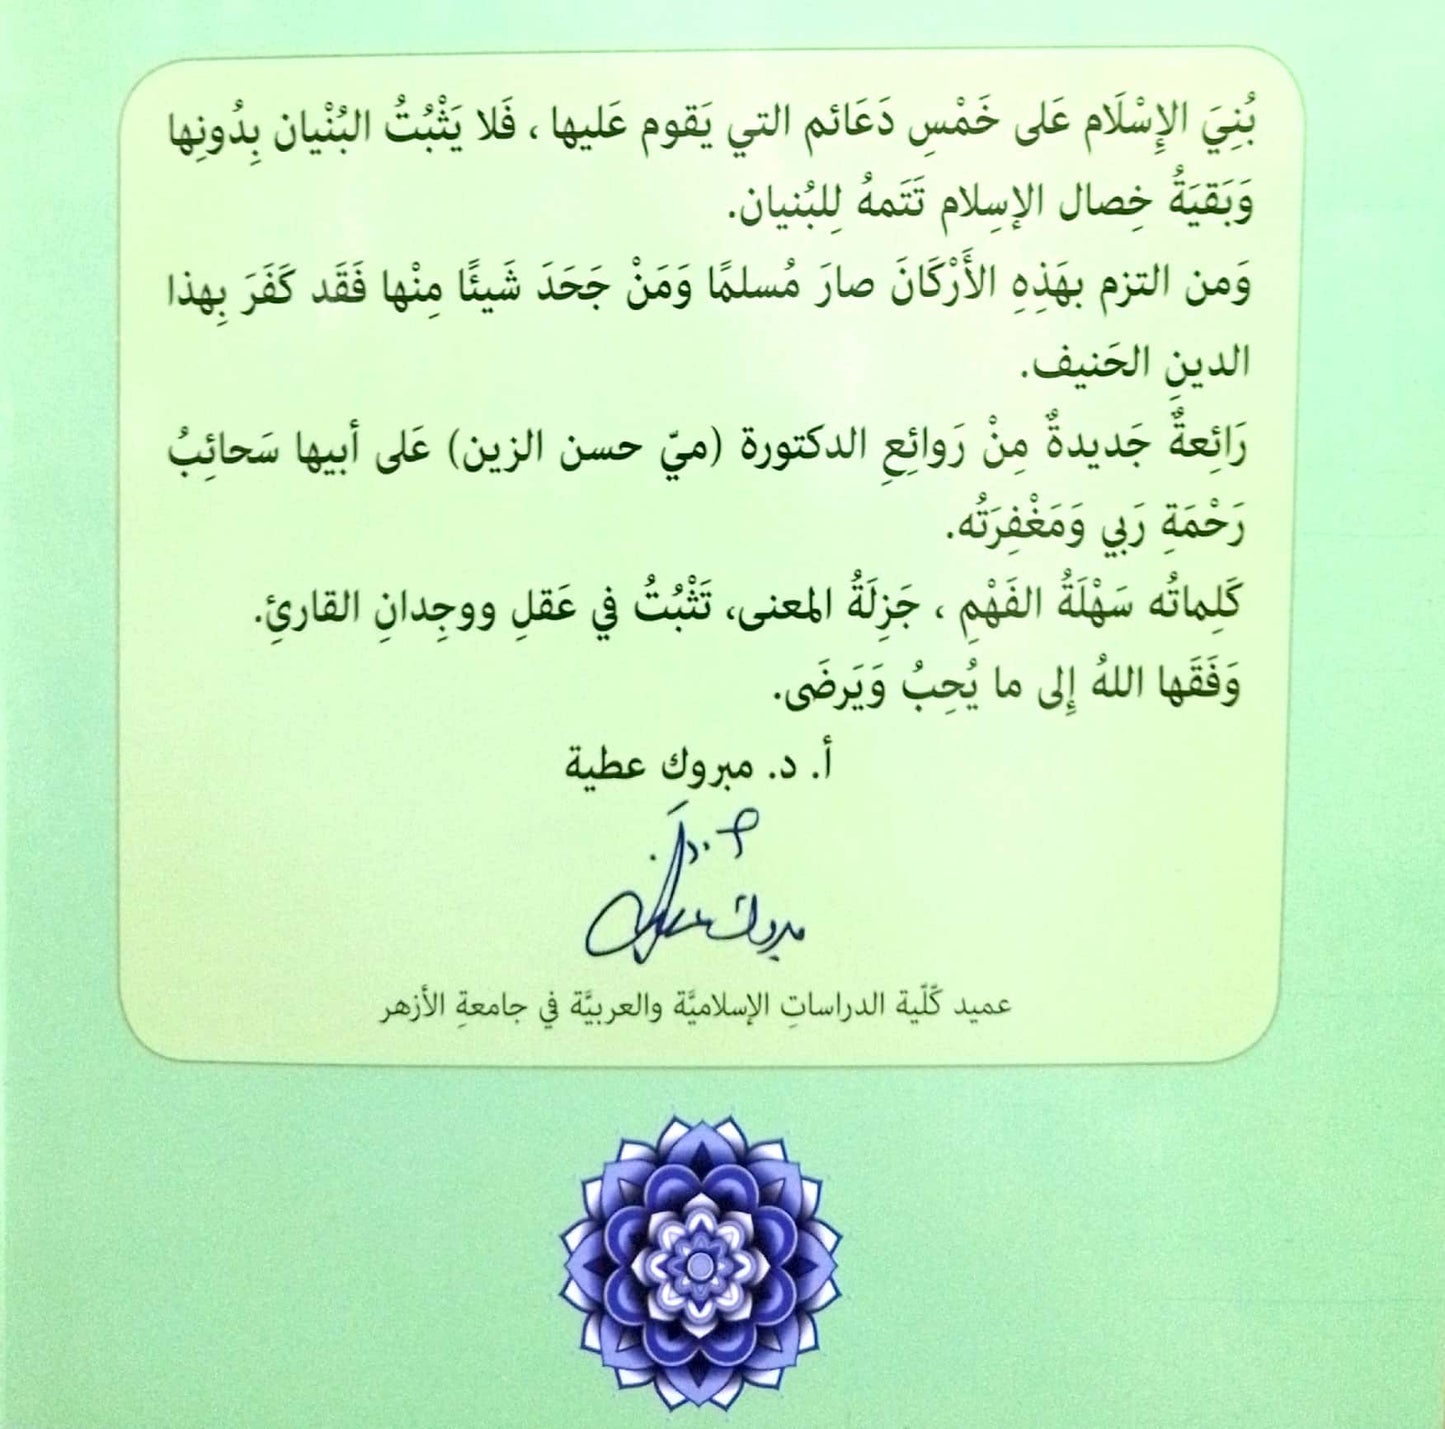 بُنِيَ الإِسْلَام عَلى خَمْسِ دَعَائم التي يَقوم عَليها ، فَلا يَثْبُتُ البُنْيان بِدُونِها
وَبَقيَةُ خِصال الإسِلام تَتَمهُ لِلبُنيان.
وَمن التزم بهَذِهِ الأَرْكَانَ صارَ مُسلمًا وَمَنْ جَحَدَ شَيئًا مِنْها فَقَد كَفَرَ بِهذا
الدينِ الحَنيف.
رَائِعةٌ جَديدةٌ مِنْ رَوائِعِ الدكتورة (ميّ حسن الزين) عَلى أبيها سَحائِبُ
رَحْمَةِ رَبي وَمَغْفِرَتُه.
كَلِماتُه سَهْلَةُ الفَهْمِ ، جَزِلَةُ المعنى، تَثْبُتُ في عَقلِ ووجِدانِ القارئِ.
وَفَقَها اللهُ إِلى ما يُحِبُ وَيَرضَى.
أ. د. مبروك عطية
أ.د.
مبروك عطية
عميد كَّلّية الدراساتِ الإسلاميَّة والعربيَّة في جامعةِ الأزهر